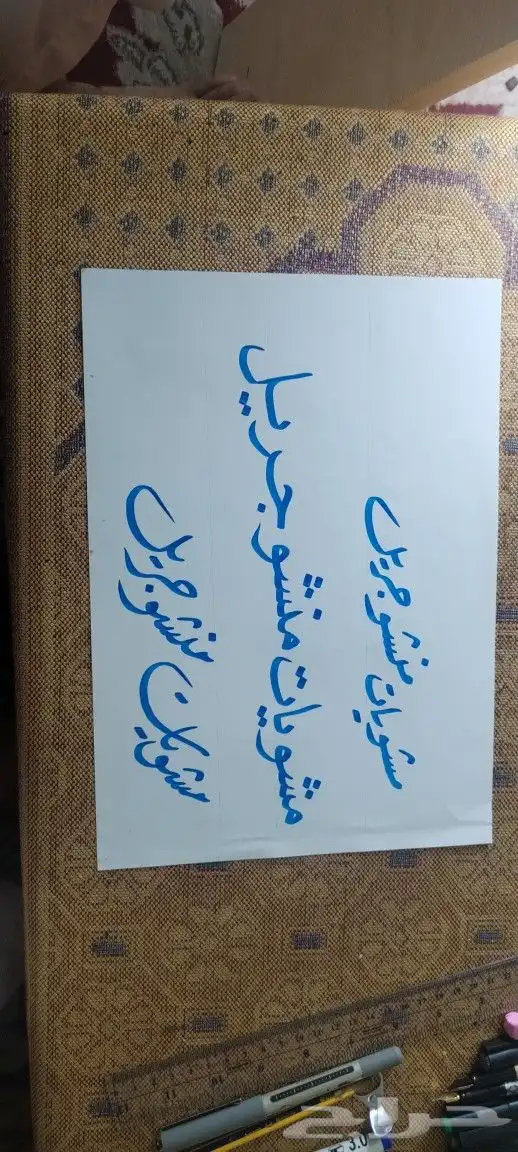 مشويات منشو جريل
مشويات منشو جريل
مشويات منشو جريل
3.0
حراج